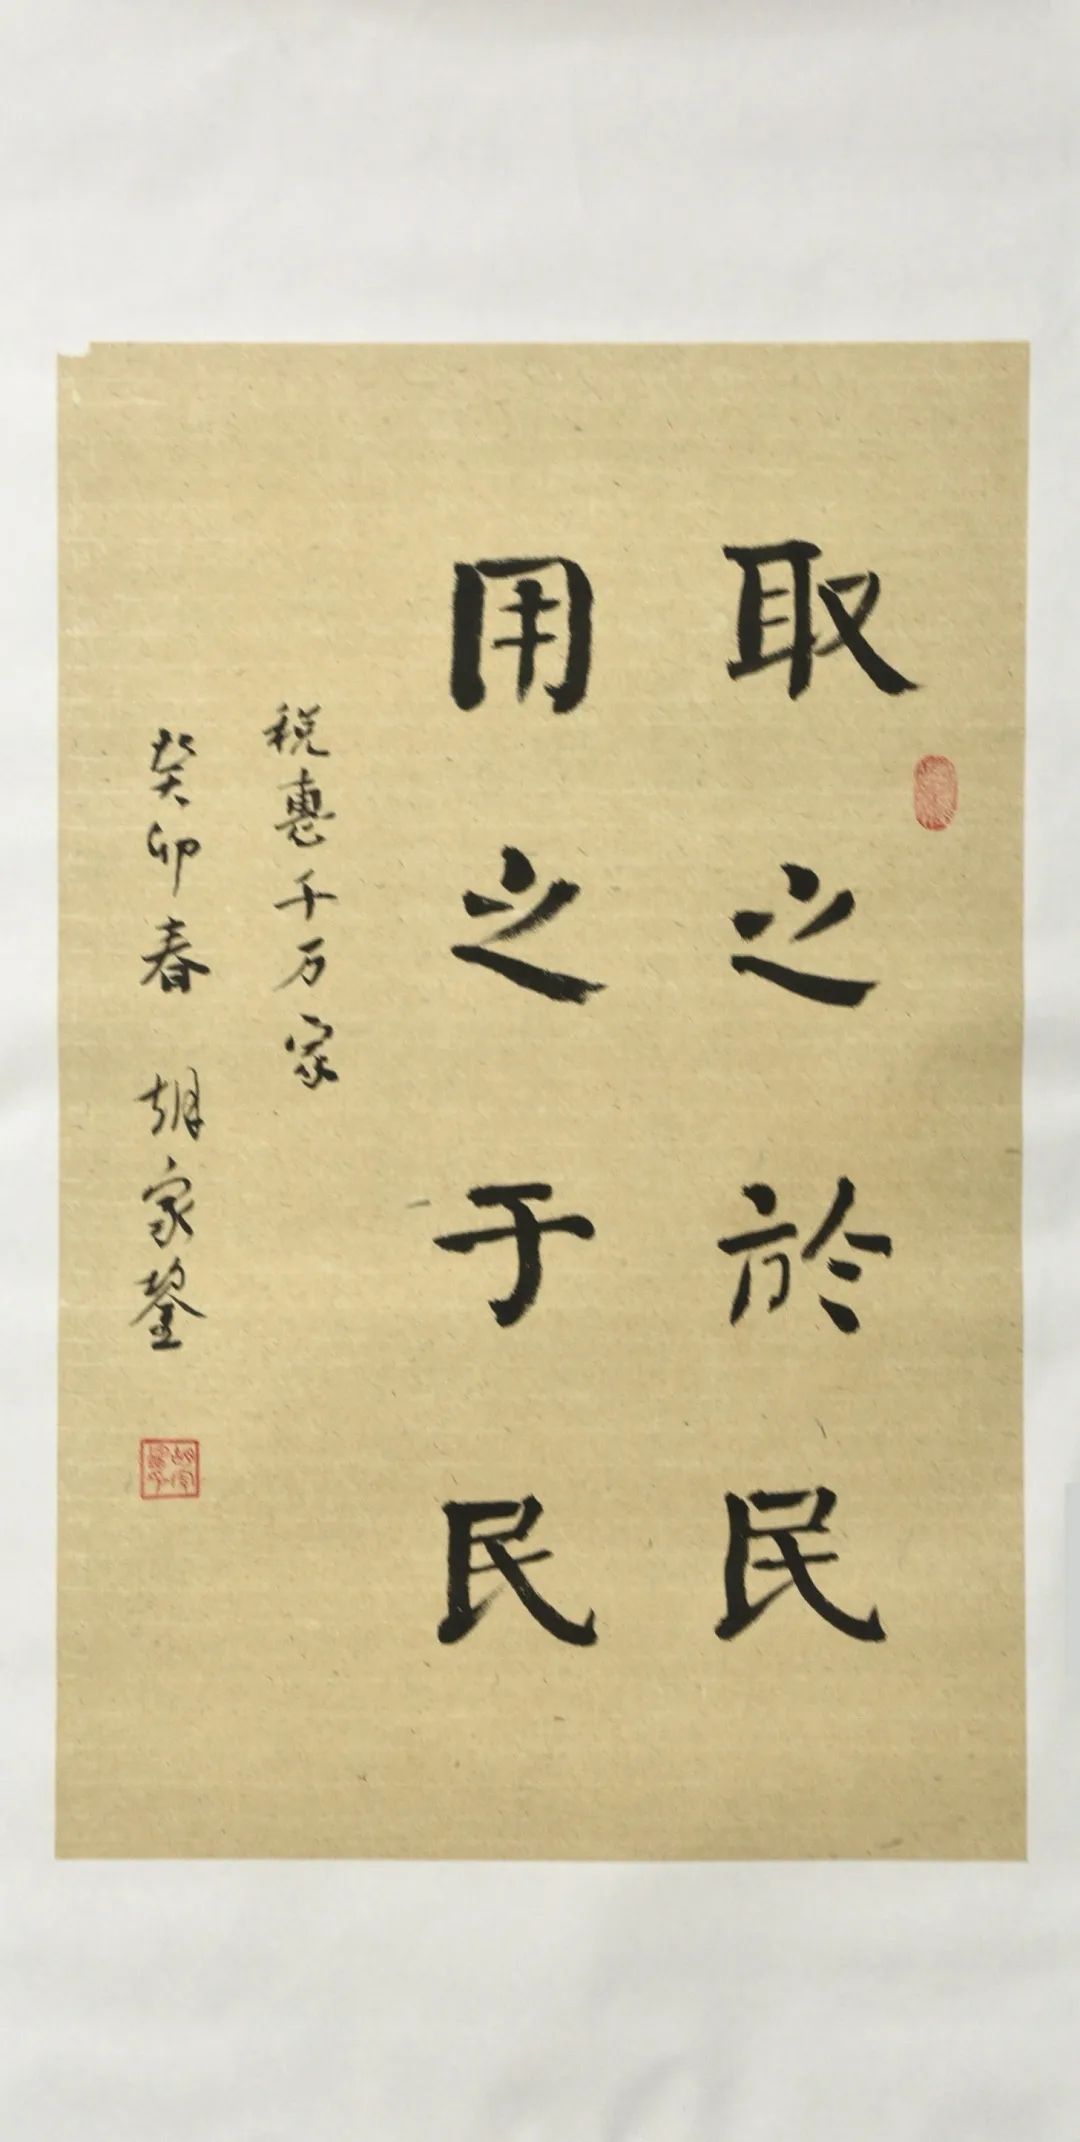 取之於民
用之于民
税惠千万家
癸卯春 胡家鋆